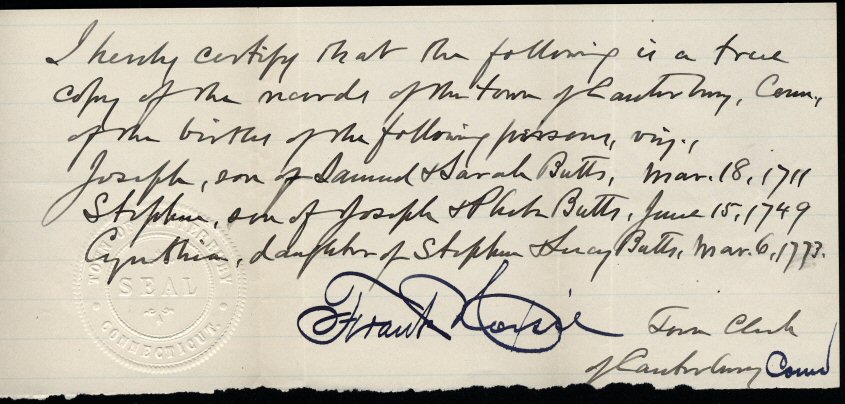 I hereby certify that the following is a true
copy of the records of the town of Canterbury, Conn.,
of the births of the following persons, viz.,
Joseph, son of Samuel & Sarah Butts, Mar. 18, 1711
Stephen, son of Joseph & Phebe Butts, June 15, 1749
Cynthia, daughter of Stephen & Lucy Butts, Mar. 6, 1773.
Frank Town Clerk
of Canterbury Conn
TOWN OF CANTERBURY
SEAL
CONNECTICUT.